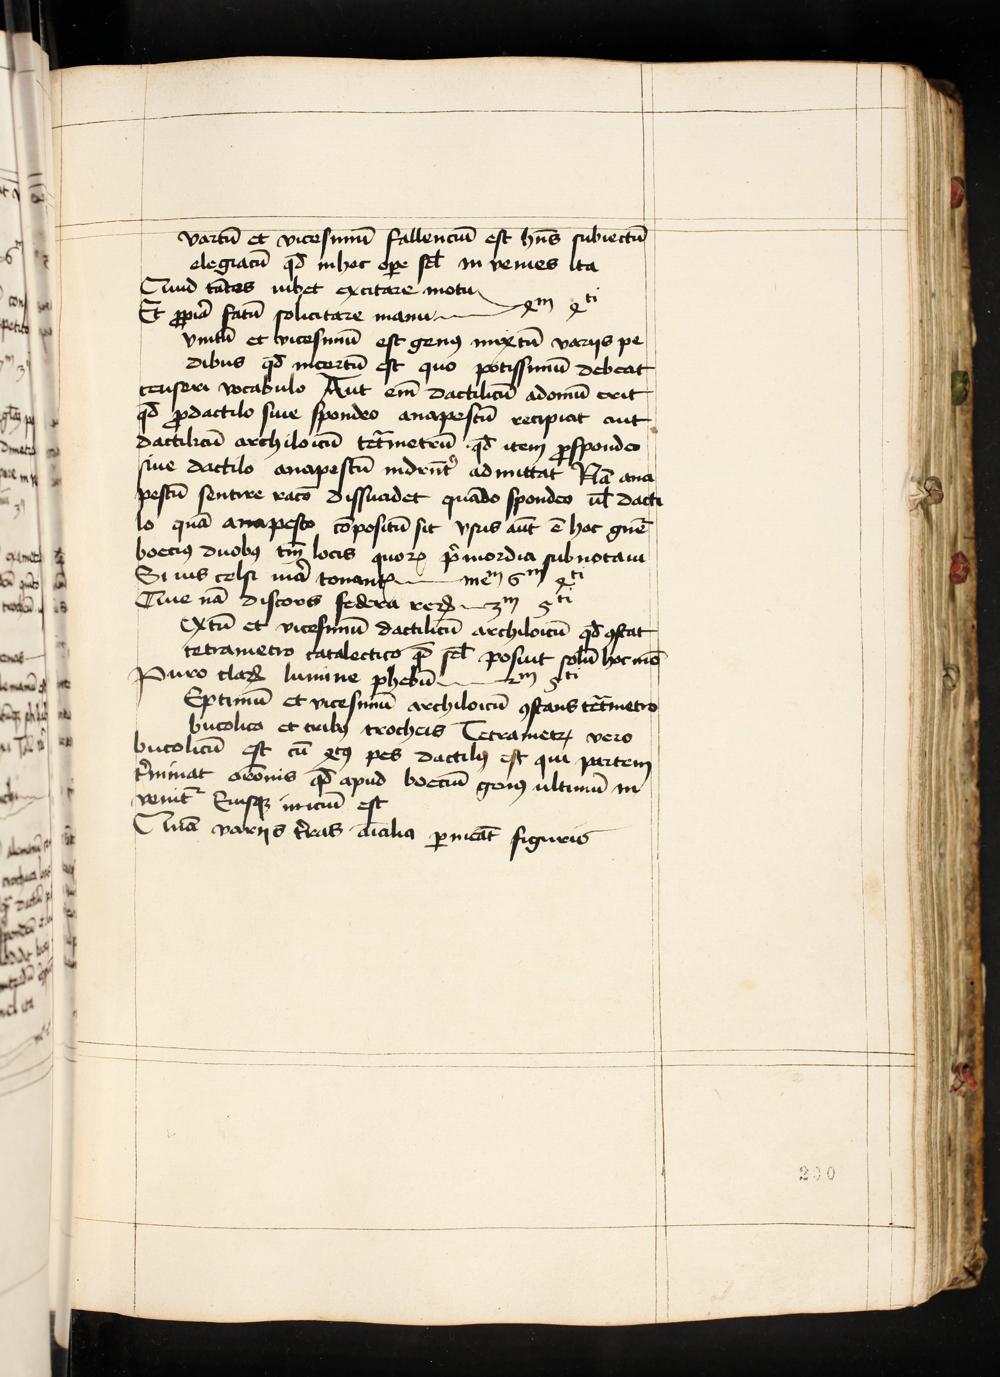 vartū et vicesimū fallenciū est hn̄s subiectū
elegiacū qd̄ in hoc oꝑe sel̄ in venies ita
Quid tātos iubet excitare motu
Et ꝓpiā fatū solicitare manu 4m 4ti
Vnitū et vicesimū est genꝰ mixtū variis pe
dibus qd̄ incertū est quo potissimū debeat
censeri vocabulo Aut em̄ dactilicū adomū erit
qd̄ ꝓ dactilo siue spondeo anapestū recipiat aut
dactilicū archiloicū tet̄metrū qd̄ item ꝓ spondeo
siue dactilo anapestū admittat Nā ana
pestū sentire racō dissuadet quādo spondeo ul̄ dacti
lo quā anapesto cōpositū sit vsus aūt ē hoc gn̄e
boecius duobꝰ tm̄ locis quoꝝ pͥmordia subnotaui
Si uis celsi iura tonantꝭ mem 6m 4ti
Que nā discors federa reꝝ 3m 5ti
extū et vicesimū dactilicū archiloicū qd̄ ꝯstat
tetrametro catalectico sel̄ posuit solū hoc mō
Puro claꝝ lumine phebū 2m 5ti
Eptimū et vicesimū archiloicū ꝯstans tet̄metro
bucolico et tribꝰ trocheis Tetrametꝝ vero
bucolicū est cū pes dactilꝰ est qui partem
t̄minat orōnis qd̄ apud boeciū genꝰ ultimū in
venit᷑ Eiusqꝫ iniciū est
Quā variis t̄ras aīalia ꝑmeāt figuris
200